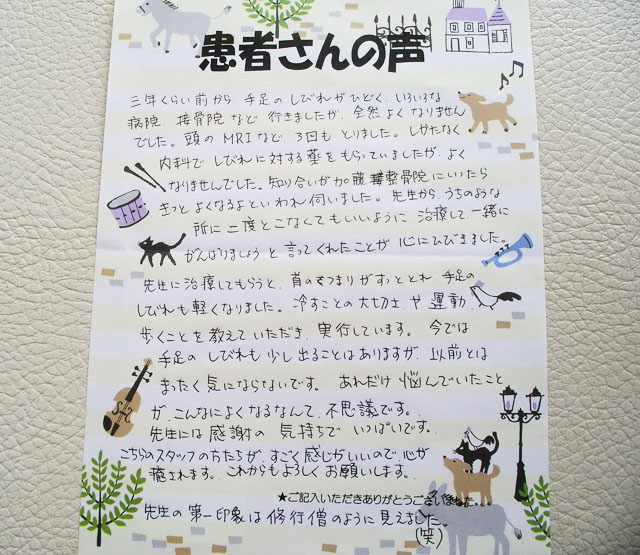 患者さんの声
三年くらい前から、手足のしびれがひどく、いろいろな
病院、接骨院など行きましたが、全然よくなりません
でした。頭のMRIなど、3回もとりました。しかたなく
内科でしびれに対する薬をもらっていましたが、よく
なりませんでした。知り合いが加藤整骨院にいったら
きっとよくなるよといわれ伺いました。先生から、うちのような
所に二度とこなくてもいいように、治療して一緒に
がんばりましょうと言ってくれたことが心にひびきました。
先生に治療してもらうと、首のつまりがすっととれ、手足の
しびれも軽くなりました。冷すことの大切さや運動、
歩くことを教えていただき、実行しています。今では
手足のしびれも少し出ることはありますが、以前とは
まったく気にならないです。あれだけ悩んでいたこと
が、こんなによくなるなんて、不思議です。
先生には感謝の気持ちでいっぱいです。
こちらのスタッフの方たちが、すごく感じがいいので、心が
癒されます。これからもよろしくお願いします。
★ご記入いただきありがとうございました
先生の第一印象は修行僧のように見えました。
(笑)